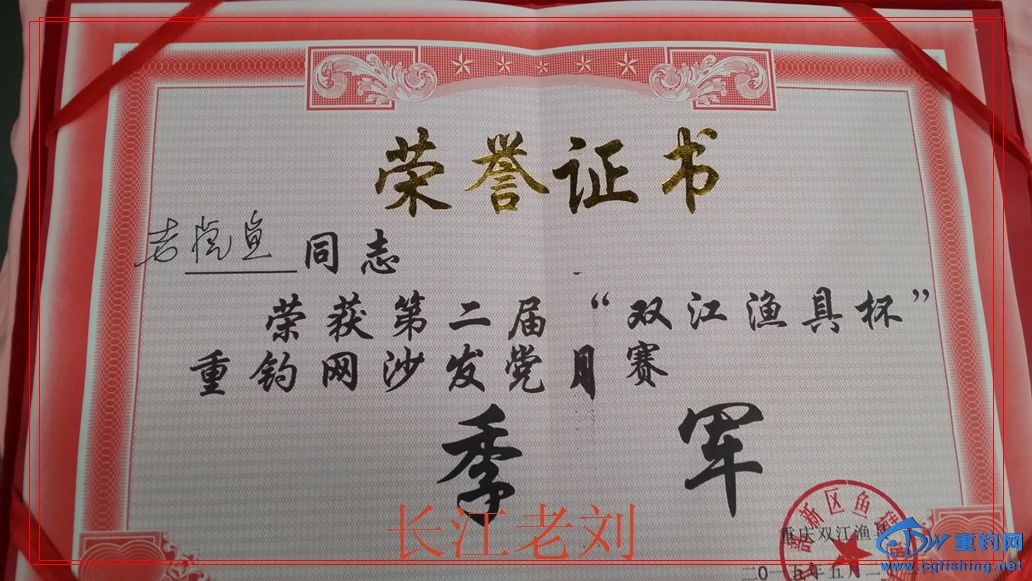 荣誉证书
同志
荣获第二届“双江渔具杯”
重钓网沙发党月赛
季军
新区鱼
重庆双江渔具
二〇一五年五月二
长江老刘
重钓网
www.cqfishing.net